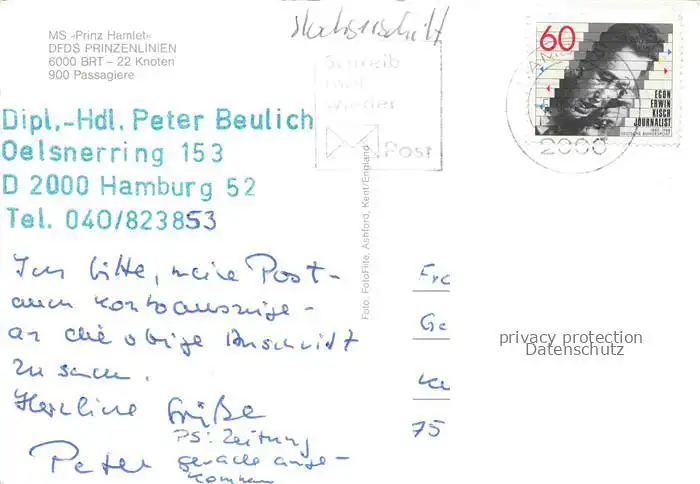 MS »Prinz Hamlet«
DFDS PRINZENLINIEN
6000 BRT – 22 Knoten
900 Passagiere
Schreib
mal
wieder
Post
60
EGON
ERWIN
KISCH
JOURNALIST
1885-1948
DEUTSCHE BUNDESPOST
2000
Dipl.-Hdl. Peter Beulich
Oelsnerring 153
D 2000 Hamburg 52
Tel. 040/823853
Foto: FotoFlite, Ashford, Kent/England
Ich bitte, meine Post-
auch Kontoauszüge -
an die obige Anschrift
zu senden.
Herzliche Grüße
Peter
PS: Zeitung
gerade ange-
kommen
Fra
Ge
Ka
75
privacy protection
Datenschutz